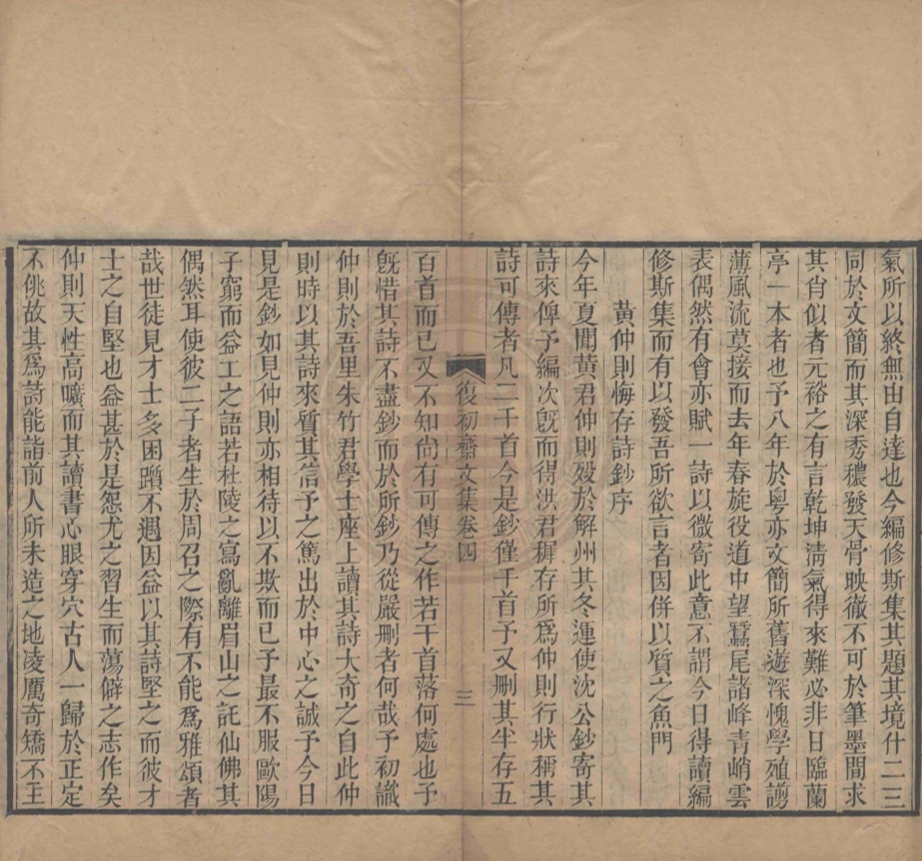 氣所以終無由自達也今編修斯集其題其境什二三
同於文簡而其深秀穠發天骨映徹不可於筆墨間求
其肖似者元裕之有言乾坤清氣得來難必非日臨蘭
亭一本者也予八年於粵亦文簡所舊遊深愧學殖譾
薄風流莫接而去年春旋役道中望蠶尾諸峰青峭雲
表偶然有會亦賦一詩以微寄此意不謂今日得讀編
修斯集而有以發吾所欲言者因併以質之魚門
黃仲則悔存詩鈔序
今年夏聞黃君仲則歿於解州其冬運使沈公鈔寄其
詩來俾予編次旣而得洪君稺存所爲仲則行狀稱其
詩可傳者凡二千首今是鈔僅千首予又刪其半存五
復初齋文集卷四
三
百首而已又不知尙有可傳之作若干首落何處也予
旣惜其詩不盡鈔而於所鈔乃從嚴刪者何哉予初識
仲則於吾里朱竹君學士座上讀其詩大奇之自此仲
則時以其詩來質其信予之篤出於中心之誠予今日
見是鈔如見仲則亦相待以不欺而已予最不服歐陽
子窮而益工之語若杜陵之寫亂離眉山之託仙佛其
偶然耳使彼二子者生於周召之際有不能爲雅頌者
哉世徒見才士多困躓不遇因益以其詩堅之而彼才
士之自堅也益甚於是怨尤之習生而蕩僻之志作矣
仲則天性高曠而其讀書心眼穿穴古人一歸於正定
不佻故其爲詩能詣前人所未造之地凌厲奇矯不主